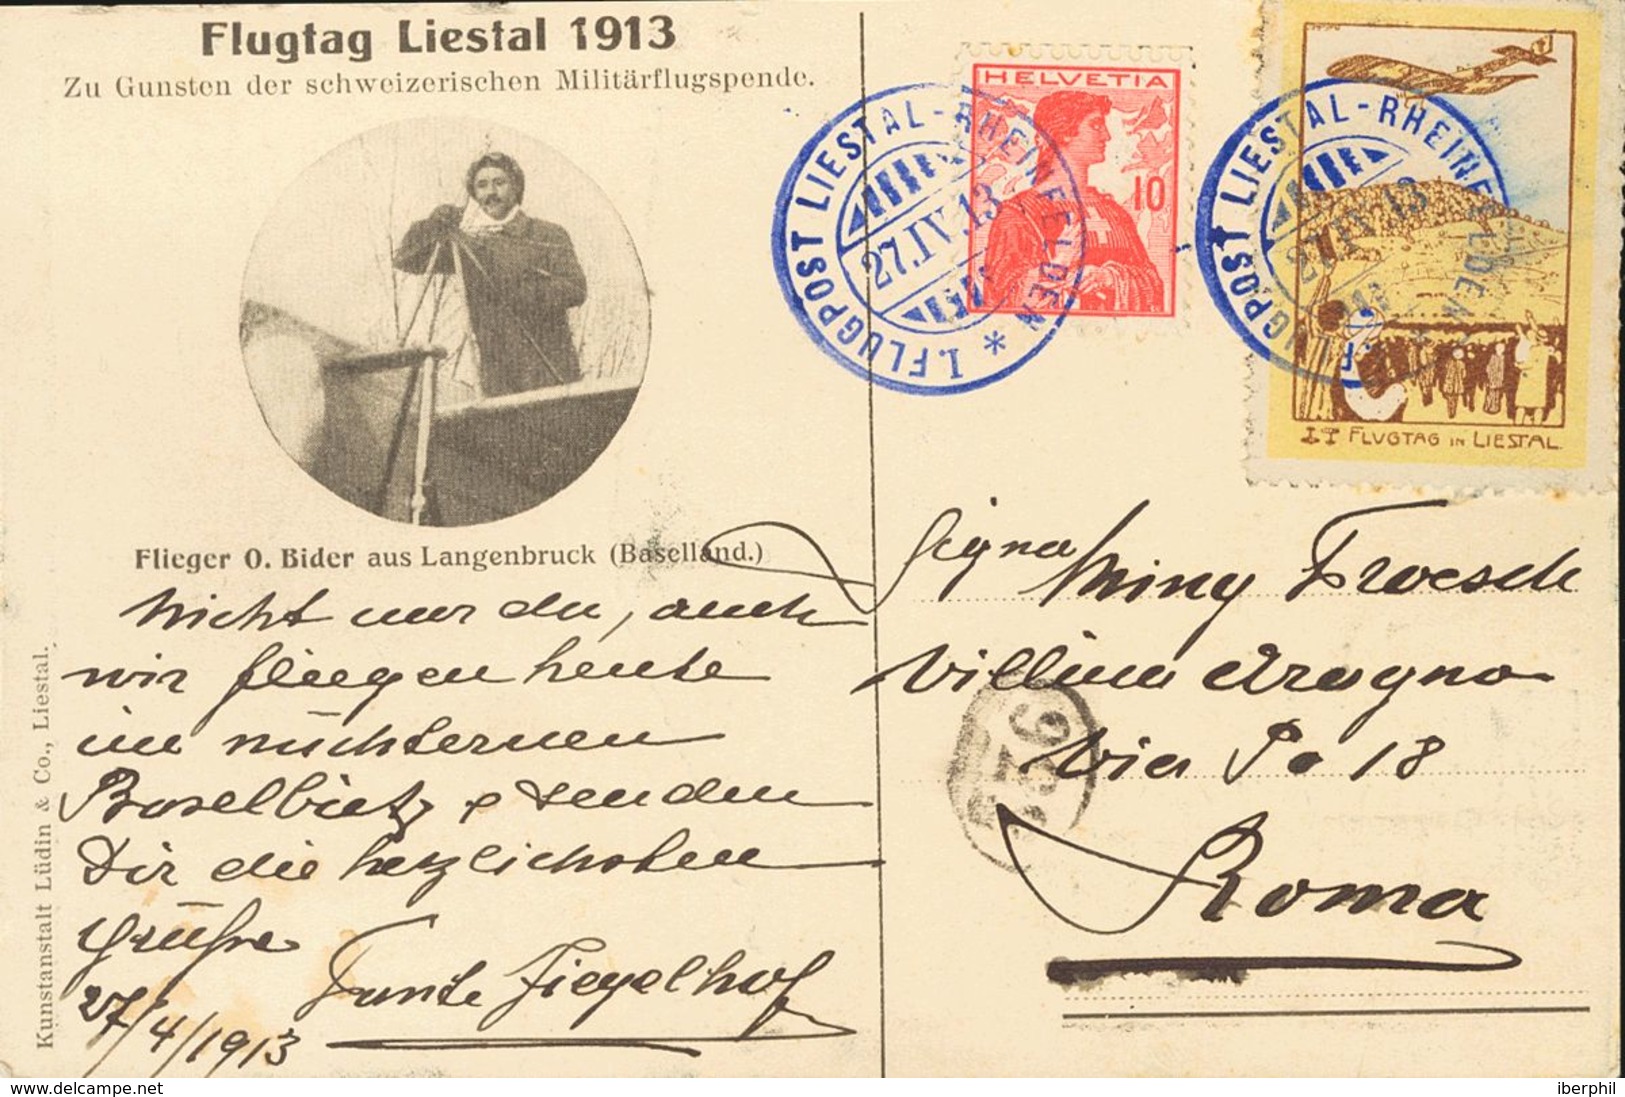 Flugtag Liestal 1913
Zu Gunsten der schweizerischen Militärflugspende.
Flieger O. Bider aus Langenbruck (Baselland.)
Nicht nur du, auch
wir fliegen heute
im nüchternen
Baselbiet & senden
Dir die herzlichsten
Grüsse
27/4/1913
Tante Ziegelhof
Kunstanstalt Lüdin & Co., Liestal.
HELVETIA
10
I. FLUGPOST LIESTAL-RHEINFELDEN *
27.IV.13
I. FLUGPOST LIESTAL-RHEINFELDEN *
27.IV.13
FLVGTAG IN LIESTAL
Signa Miny Froesch
Villino Aragno
Via Po 18
Roma
delcampe.net
iberphil